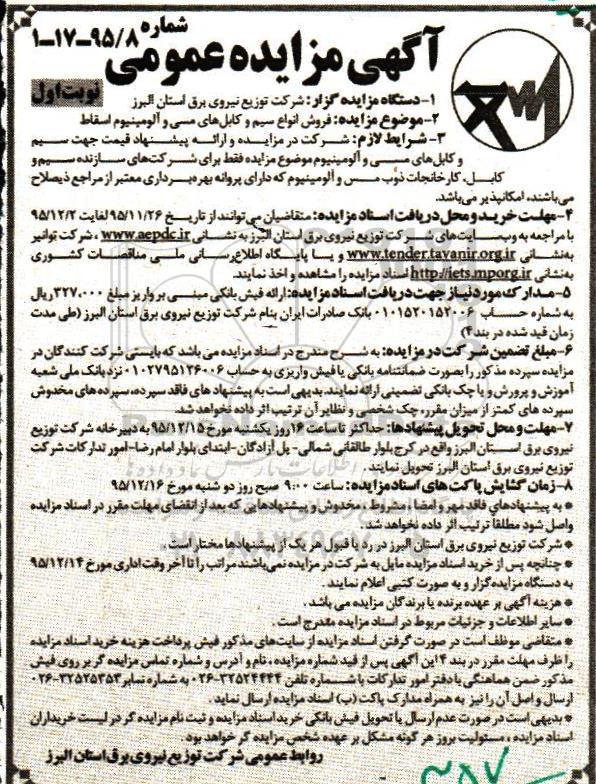 شماره ۹۵/۸-۱۷-۱
آگهی مزایده عمومی
نوبت اول
۱-دستگاه مزایده گزار: شرکت توزیع نیروی برق استان البرز
۲-موضوع مزایده: فروش انواع سیم و کابل‌های مسی و آلومینیوم اسقاط
۳-شرایط لازم: شرکت در مزایده و ارائه پیشنهاد قیمت جهت سیم
و کابل‌های مسی و آلومینیوم موضوع مزایده فقط برای شرکت‌های سازنده سیم و
کابل، کارخانجات ذوب مس و آلومینیوم که دارای پروانه بهره‌برداری معتبر از مراجع ذیصلاح
می‌باشند، امکانپذیر می‌باشد.
۴-مهلت خرید و محل دریافت اسناد مزایده: متقاضیان می‌توانند از تاریخ ۹۵/۱۱/۲۶ لغایت ۹۵/۱۲/۲
با مراجعه به وب‌سایت‌های شرکت توزیع نیروی برق استان البرز به نشانی www.aepdc.ir ، شرکت توانیر
به‌نشانی www.tender.tavanir.org.ir و یا پایگاه اطلاع‌رسانی ملی مناقصات کشوری
به‌نشانی http://iets.mporg.ir اسناد مزایده را مشاهده و اخذ نمایند.
۵-مدارک مورد نیاز جهت دریافت اسناد مزایده: ارائه فیش بانکی مبنی بر واریز مبلغ ۳۲۷،۰۰۰ ریال
به شماره حساب ۰۱۰۱۵۲۰۱۵۲۰۰۶ بانک صادرات ایران بنام شرکت توزیع نیروی برق استان البرز (طی مدت
زمان قید شده در بند ۴)
۶-مبلغ تضمین شرکت در مزایده: به شرح مندرج در اسناد مزایده می‌باشد که بایستی شرکت کنندگان در
مزایده سپرده مذکور را بصورت ضمانتنامه بانکی یا فیش واریزی به حساب ۰۱۰۲۷۹۵۱۳۶۰۰۶ نزد بانک ملی شعبه
آموزش و پرورش و یا چک بانکی تضمینی ارائه نمایند. بدیهی است به پیشنهاد های فاقد سپرده، سپرده های مخدوش
سپرده های کمتر از میزان مقرر، چک شخصی و نظایر آن ترتیب اثر داده نخواهد شد.
۷-مهلت و محل تحویل پیشنهادها: حداکثر تا ساعت ۱۶ روز یکشنبه مورخ ۹۵/۱۲/۱۵ به دبیرخانه شرکت توزیع
نیروی برق استان البرز واقع در کرج بلوار طالقانی شمالی- پل آزادگان-ابتدای بلوار امام رضا-امور تدارکات شرکت
توزیع نیروی برق استان البرز تحویل نمایند.
۸-زمان گشایش پاکت های اسناد مزایده: ساعت ۹:۰۰ صبح روز دو شنبه مورخ ۹۵/۱۲/۱۶
* به پیشنهادهای فاقد مهر و امضا ، مشروط ، مخدوش و پیشنهادهایی که بعد از انقضای مهلت مقرر در اسناد مزایده
واصل شود مطلقا ترتیب اثر داده نخواهد شد.
* شرکت توزیع نیروی برق استان البرز در رد یا قبول هر یک از پیشنهادها مختار است .
* چنانچه پس از خرید اسناد مزایده مایل به شرکت در مزایده نمی‌باشند مراتب را تا آخر وقت اداری مورخ ۹۵/۱۲/۱۴
به دستگاه مزایده گزار و به صورت کتبی اعلام نمایند .
* هزینه آگهی بر عهده برنده یا برندگان مزایده می باشد .
* سایر اطلاعات و جزئیات مربوط در اسناد مزایده مندرج است .
* متقاضی موظف است در صورت گرفتن اسناد مزایده از سایت‌های مذکور فیش پرداخت هزینه خرید اسناد مزایده
را ظرف مهلت مقرر در بند ۴ این آگهی پس از قید شماره مزایده ، نام و آدرس و شماره تماس مزایده گر بر روی فیش
مذکور ضمن هماهنگی با دفتر امور تدارکات با شماره تلفن ۳۲۵۲۴۴۴۴-۰۲۶ به شماره نمابر ۳۲۵۲۵۳۵۳-۰۲۶
ارسال و اصل آن را نیز به همراه مدارک پاکت (ب) اسناد مزایده ارسال نماید .
* بدیهی است در صورت عدم ارسال یا تحویل فیش بانکی خرید اسناد مزایده و ثبت نام مزایده گر در لیست خریداران
اسناد مزایده ، مسئولیت بروز هر گونه مشکل بر عهده شخص مزایده گر خواهد بود.
روابط عمومی شرکت توزیع نیروی برق استان البرز